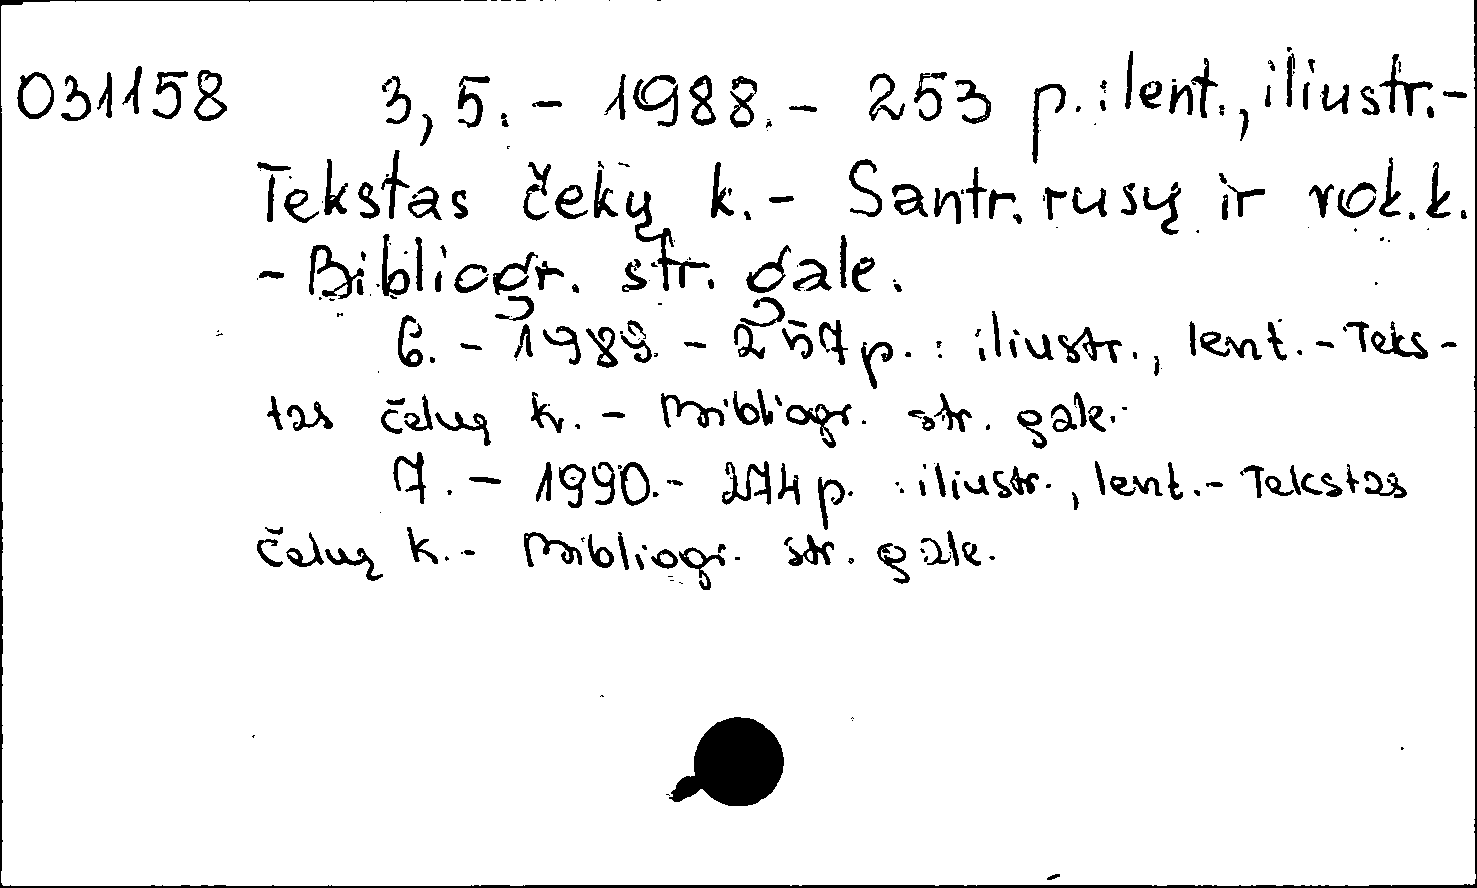 031158 3, 5. - 1988. - 253 p. : lent., iliustr. -
Tekstas čekų k. - Santr. rusų ir vok. k.
- Bibliogr. str. gale.
6. - 1989. - 257 p. : iliustr., lent. - Teks-
tas čekų k. - Bibliogr. str. gale.
7. - 1990. - 274 p. : iliustr., lent. - Tekstas
čekų k. - Bibliogr. str. gale.